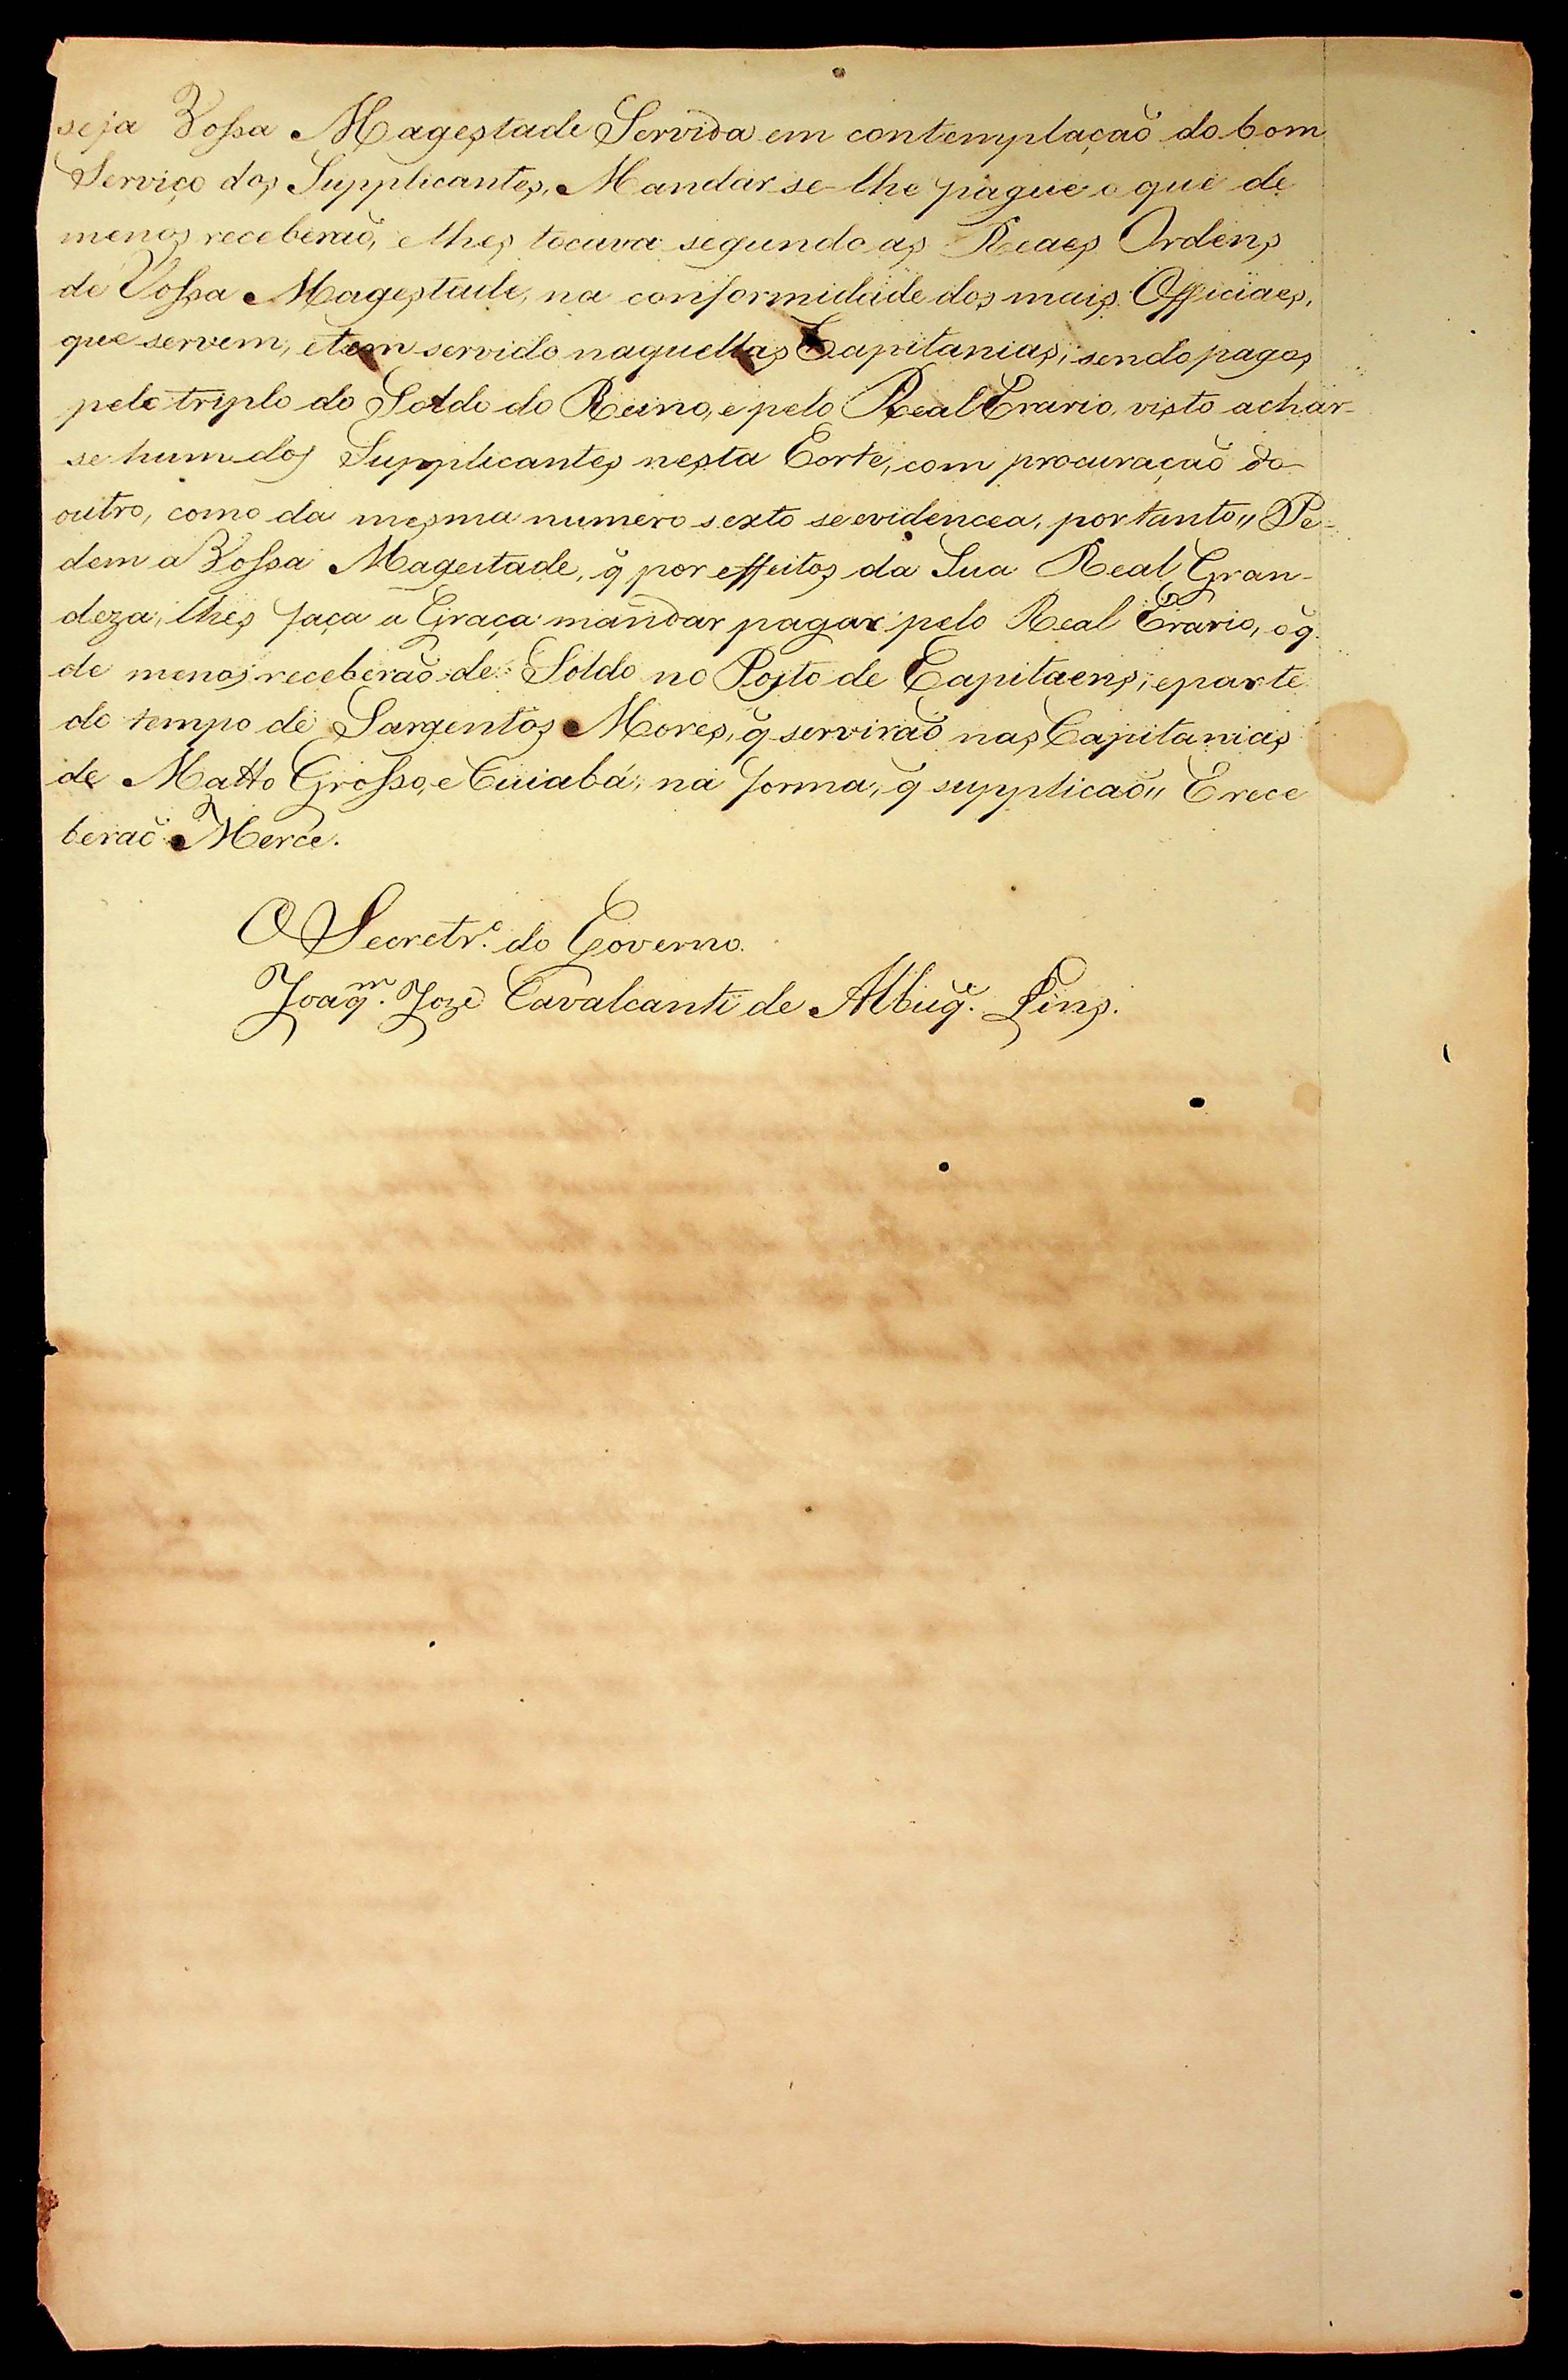 seja Vossa Magestade Servida em contemplaçaõ do bom
Serviço dos Supplicantes, Mandar se-lhe pague o que de
menos receberaõ, e lhes tocava segundo as Reaes Ordens
de Vossa Magestade, na conformidade dos mais Officiaes,
que servem, etem servido naquellas Capitanias, sendo pagos
pelo triplo do Soldo do Reino, e pelo Real Erario, visto achar-
se hum dos Supplicantes nesta Corte, com procuraçaõ do
outro, como da mesma numero sexto se evidencea, portanto,, Pe-
dem a Vossa Magestade, q̃ por effeitos da Sua Real Gran-
deza, lhes faça a Graça mandar pagar pelo Real Erario, o q̃
de menos receberaõ de Soldo no Posto de Capitaens, eparte
do tempo de Sargentos Mores, q̃ serviraõ nas Capitanias
de Matto Grosso, e Cuiabá, na forma, q̃ supplicaõ,, E rece
beraõ Merce.
O Secretr.º do Governo.
Joaq.m Joze Cavalcanti de Albuq.e Lins.